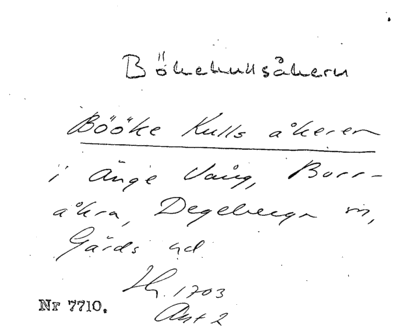 Bökekullsåkern
Bööke Kulls åkeren
i Änge Vång, Borr-
åkra, Degeberga sn,
Gärds hd
Lm. 1703
Akt 2
Nr 7710.